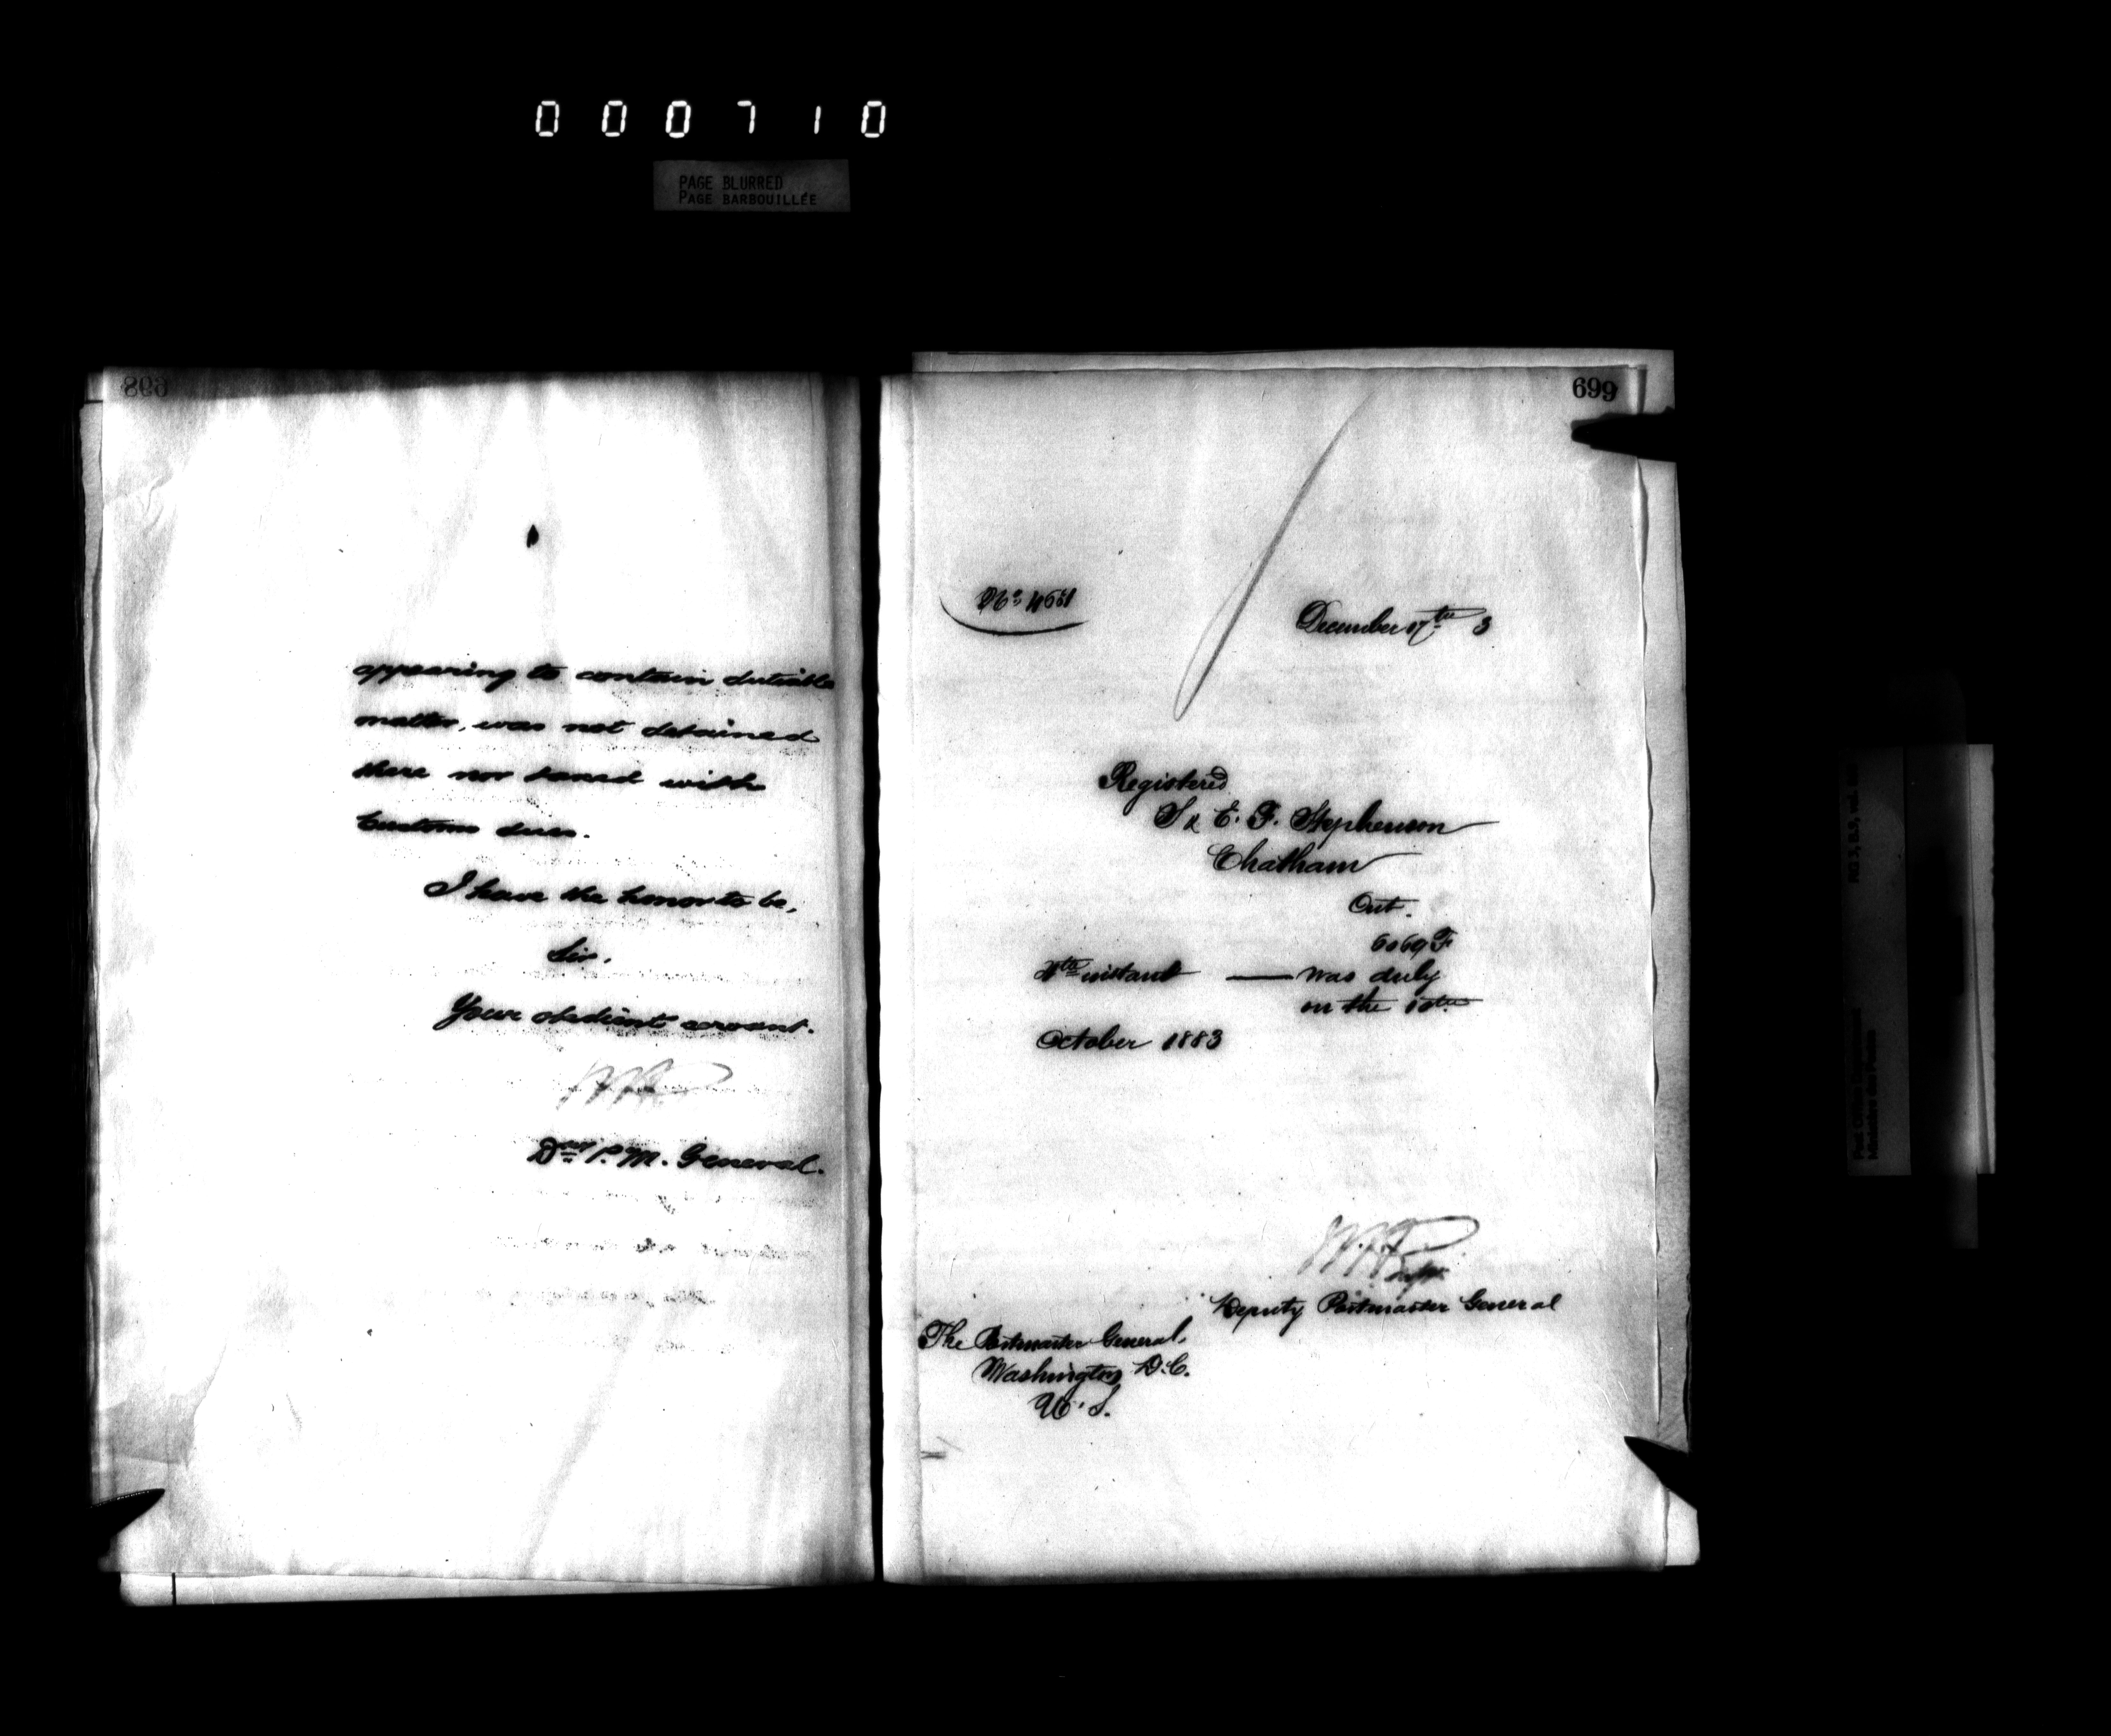 000710
PAGE BLURRED
PAGE BARBOUILLÉE
appearing to contain dutiable
matter, was not detained
there nor taxed with
Customs dues.
I have the honor to be,
Sir,
Your obedient servant.
P. M. General.
699
December 17th 3
Registered
S & E. F. Stephenson
Chatham
Ont.
6069 F
4th instant — was duly
on the 10th
October 1883
Deputy Postmaster General
The Postmaster General,
Washington D.C.
U. S.
RG 3, B.3, vol.
Post Office Department
Ministère des Postes